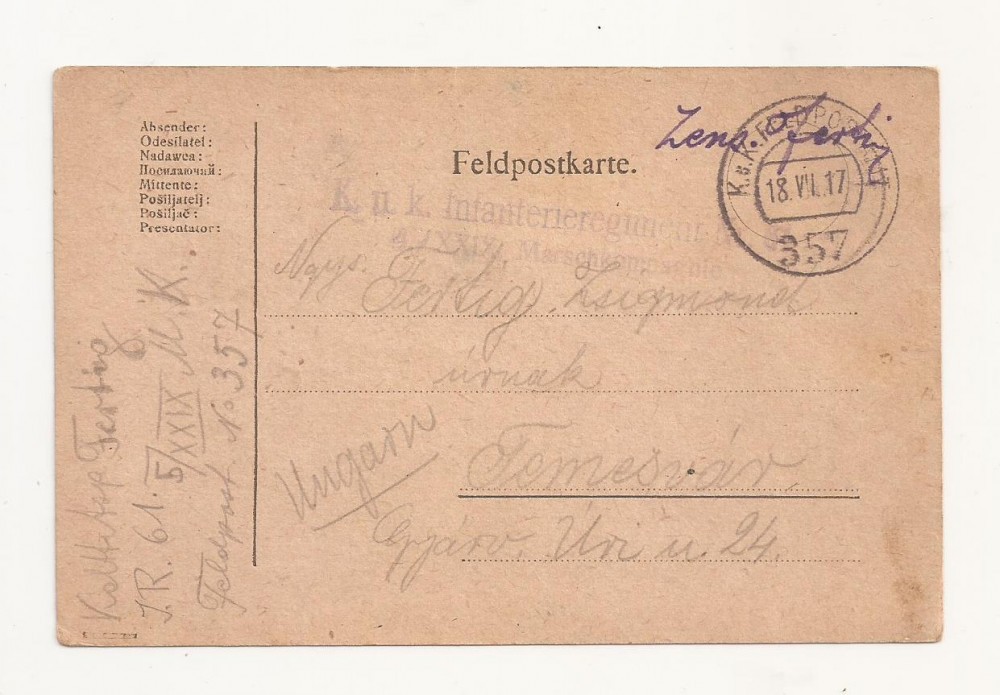 Absender:
Odesílatel:
Nadawca:
Посилаючий:
Mittente:
Pošiljatelj:
Pošiljač:
Presentator:
Feldpostkarte.
Zens.
K.u.K. FELDPOSTAMT
18.VII.17
357
K. u. k. Infanterieregiment
XXIX. Marschkompagnie
Nagys. Fertig Zsigmond
úrnak
Ungarn
Temesvár
Gyárv. Úri u. 24.
Fertig
I.R. 61. 5/XXIX M.K.
Feldpost No 357